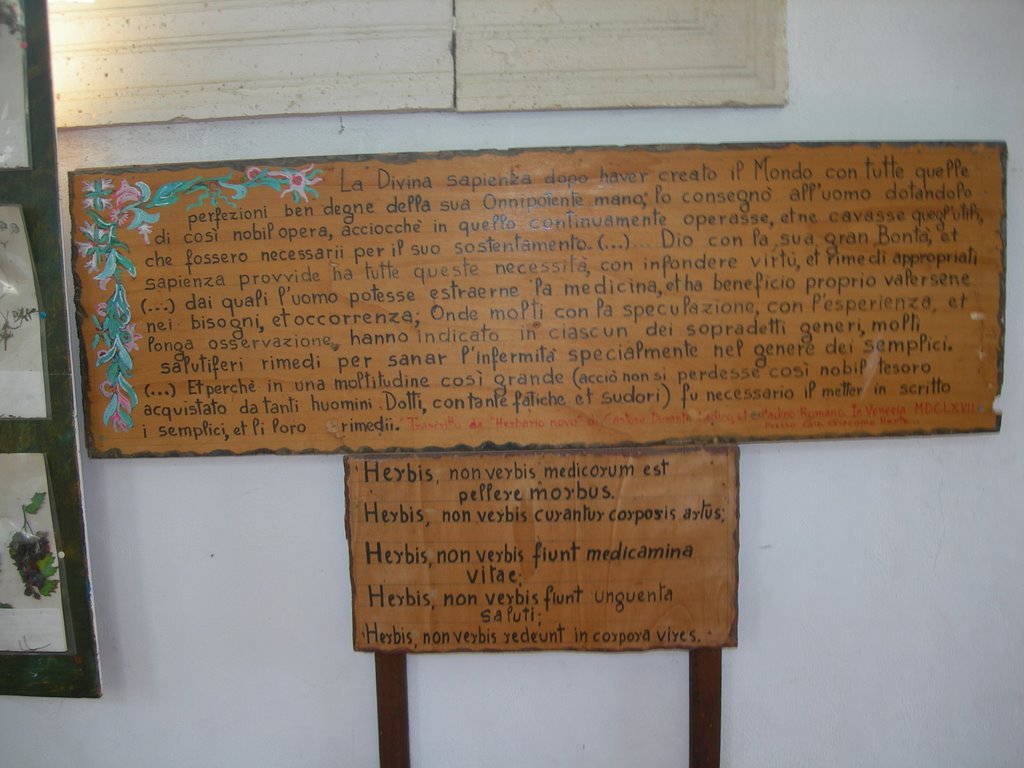 La Divina sapienza dopo haver creato il Mondo con tutte quelle
perfezioni ben degne della sua Onnipotente mano; lo consegnò all'uomo dotandolo
di così nobil opera, acciocchè in quello continuamente operasse, et ne cavasse quegl'utili,
che fossero necessarii per il suo sostentamento. (...) Dio con la sua gran Bontà, et
sapienza provvide ha tutte queste necessità, con infondere virtù, et rimedi appropriati
(...) dai quali l'uomo potesse estraerne la medicina, et ha beneficio proprio valersene
nei bisogni, et occorrenza; Onde molti con la speculazione, con l'esperienza, et
longa osservazione, hanno indicato in ciascun dei sopradetti generi, molti
salutiferi rimedi per sanar l'infermità specialmente nel genere dei semplici.
(...) Et perchè in una moltitudine così grande (acciò non si perdesse così nobil tesoro
acquistato da tanti huomini Dotti, con tante fatiche et sudori) fu necessario il metter in scritto
i semplici, et li loro rimedii. Trascritto da "Herbario novo" di Castore Durante et cittadino Romano. In Venezia MDCLXVII
Presso Giacomo
Herbis, non verbis medicorum est
pellere morbus.
Herbis, non verbis curantur corporis artus;
Herbis, non verbis fiunt medicamina
vitae;
Herbis, non verbis fiunt unguenta
saluti;
Herbis, non verbis redeunt in corpora vires.